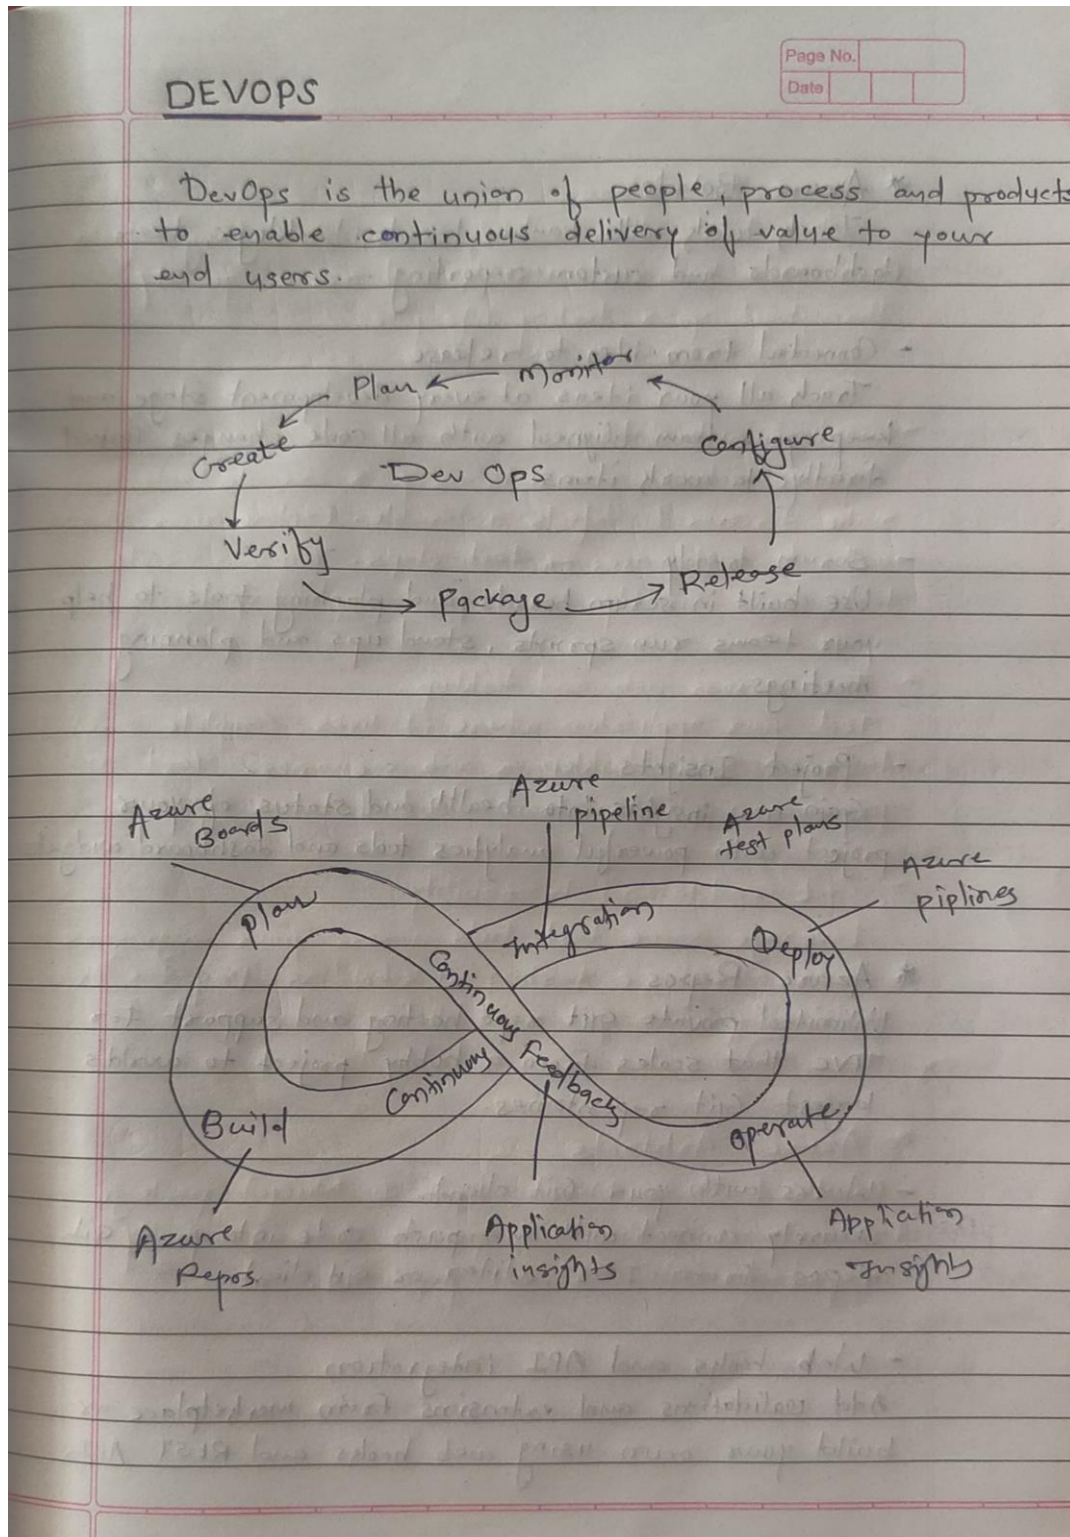 Page No.
Date
DEVOPS
DevOps is the union of people, process and products
to enable continuous delivery of value to your
end users.
Plan
Monitor
Create
Configure
Dev Ops
Verify
Package
Release
Azure
Boards
Azure
pipeline
Azure
test plans
Azure
piplines
Plan
Integration
Deploy
Continuous Feedback
Continuous
Build
Operate
Azure
Repos.
Application
insights
Application
Insights